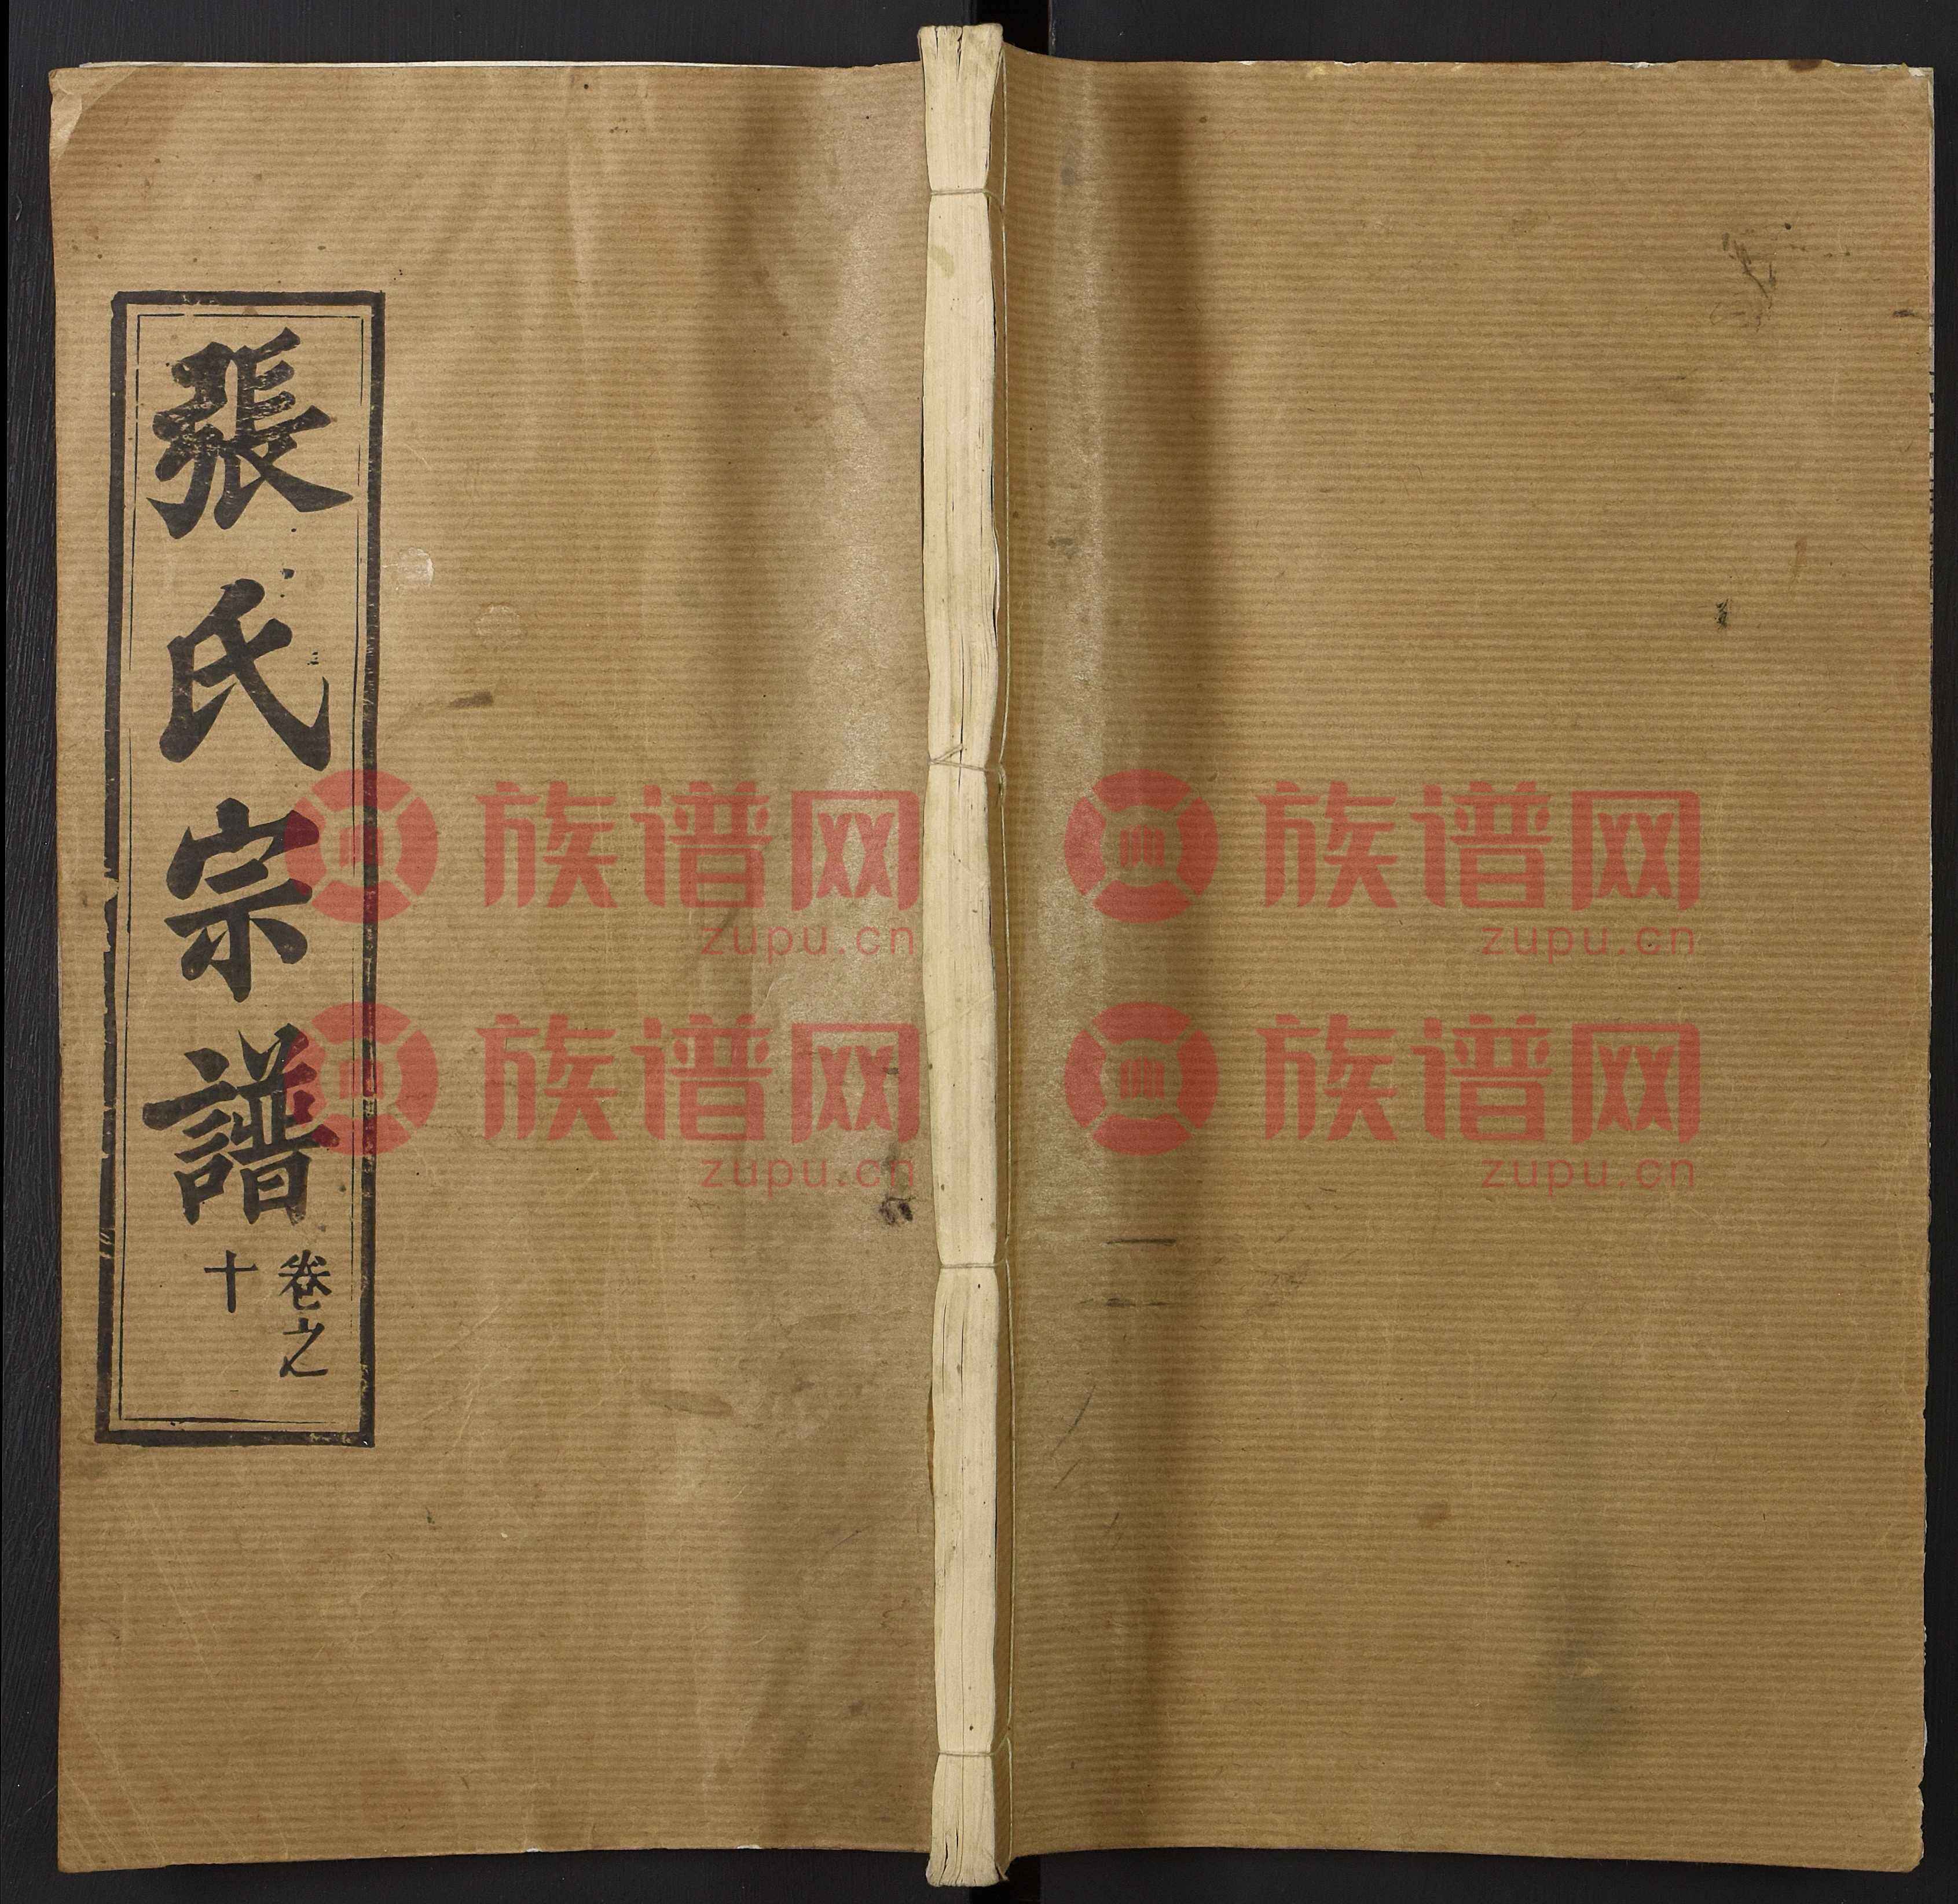 張氏宗譜
卷之
十
族谱网
zupu.cn
族谱网
zupu.cn
族谱网
zupu.cn
族谱网
zupu.cn